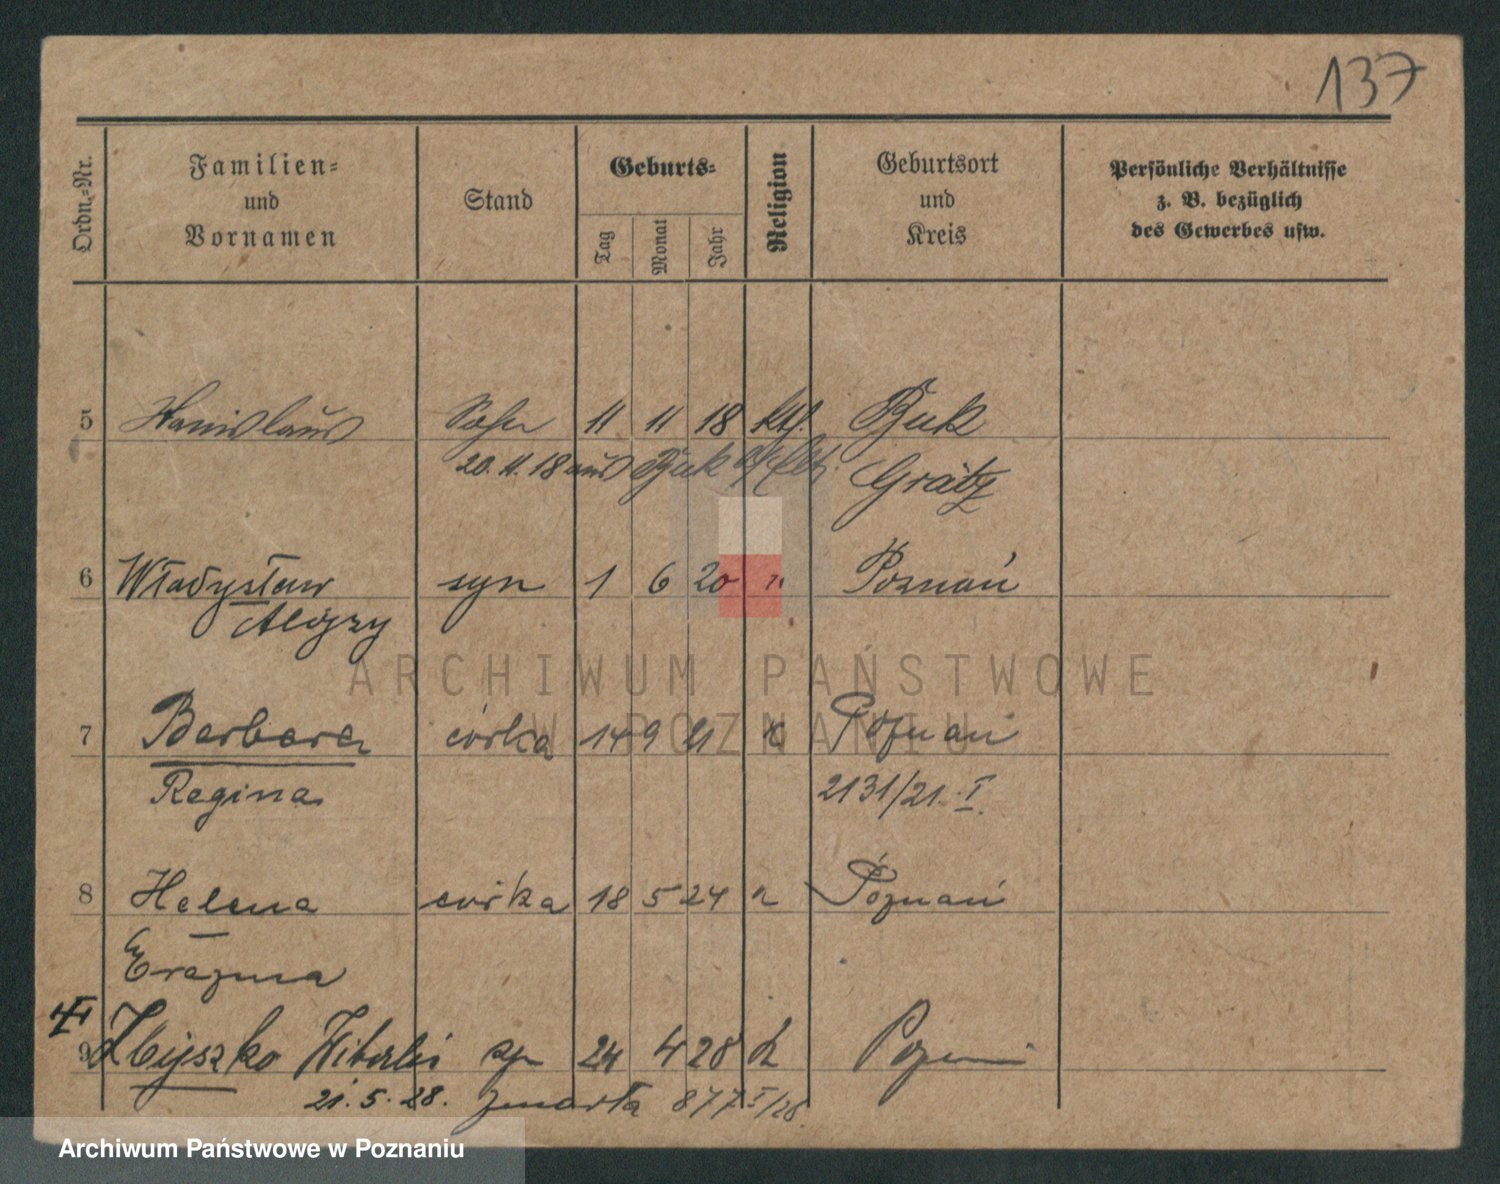 137
Ordn.-Nr.
Familien-
und
Vornamen
Stand
Geburts-
Tag
Monat
Jahr
Religion
Geburtsort
und
Kreis
Persönliche Verhältnisse
z. B. bezüglich
des Gewerbes usw.
5 Stanislaus Sohn 11 11 18 kth. Buk
20.11.18 aus Buk Grätz
6 Władysław syn 1 6 20 " Poznań
Alojzy
ARCHIWUM PAŃSTWOWE
W POZNANIU
7 Barbara córka 14 9 21 k Poznań
Regina 2131/21. I.
8 Helena córka 18 5 24 Poznań
Erazma
9 Zbyszko syn 24 4 28 k Poznań
21.5.28. zmarła 877 I/28
Archiwum Państwowe w Poznaniu